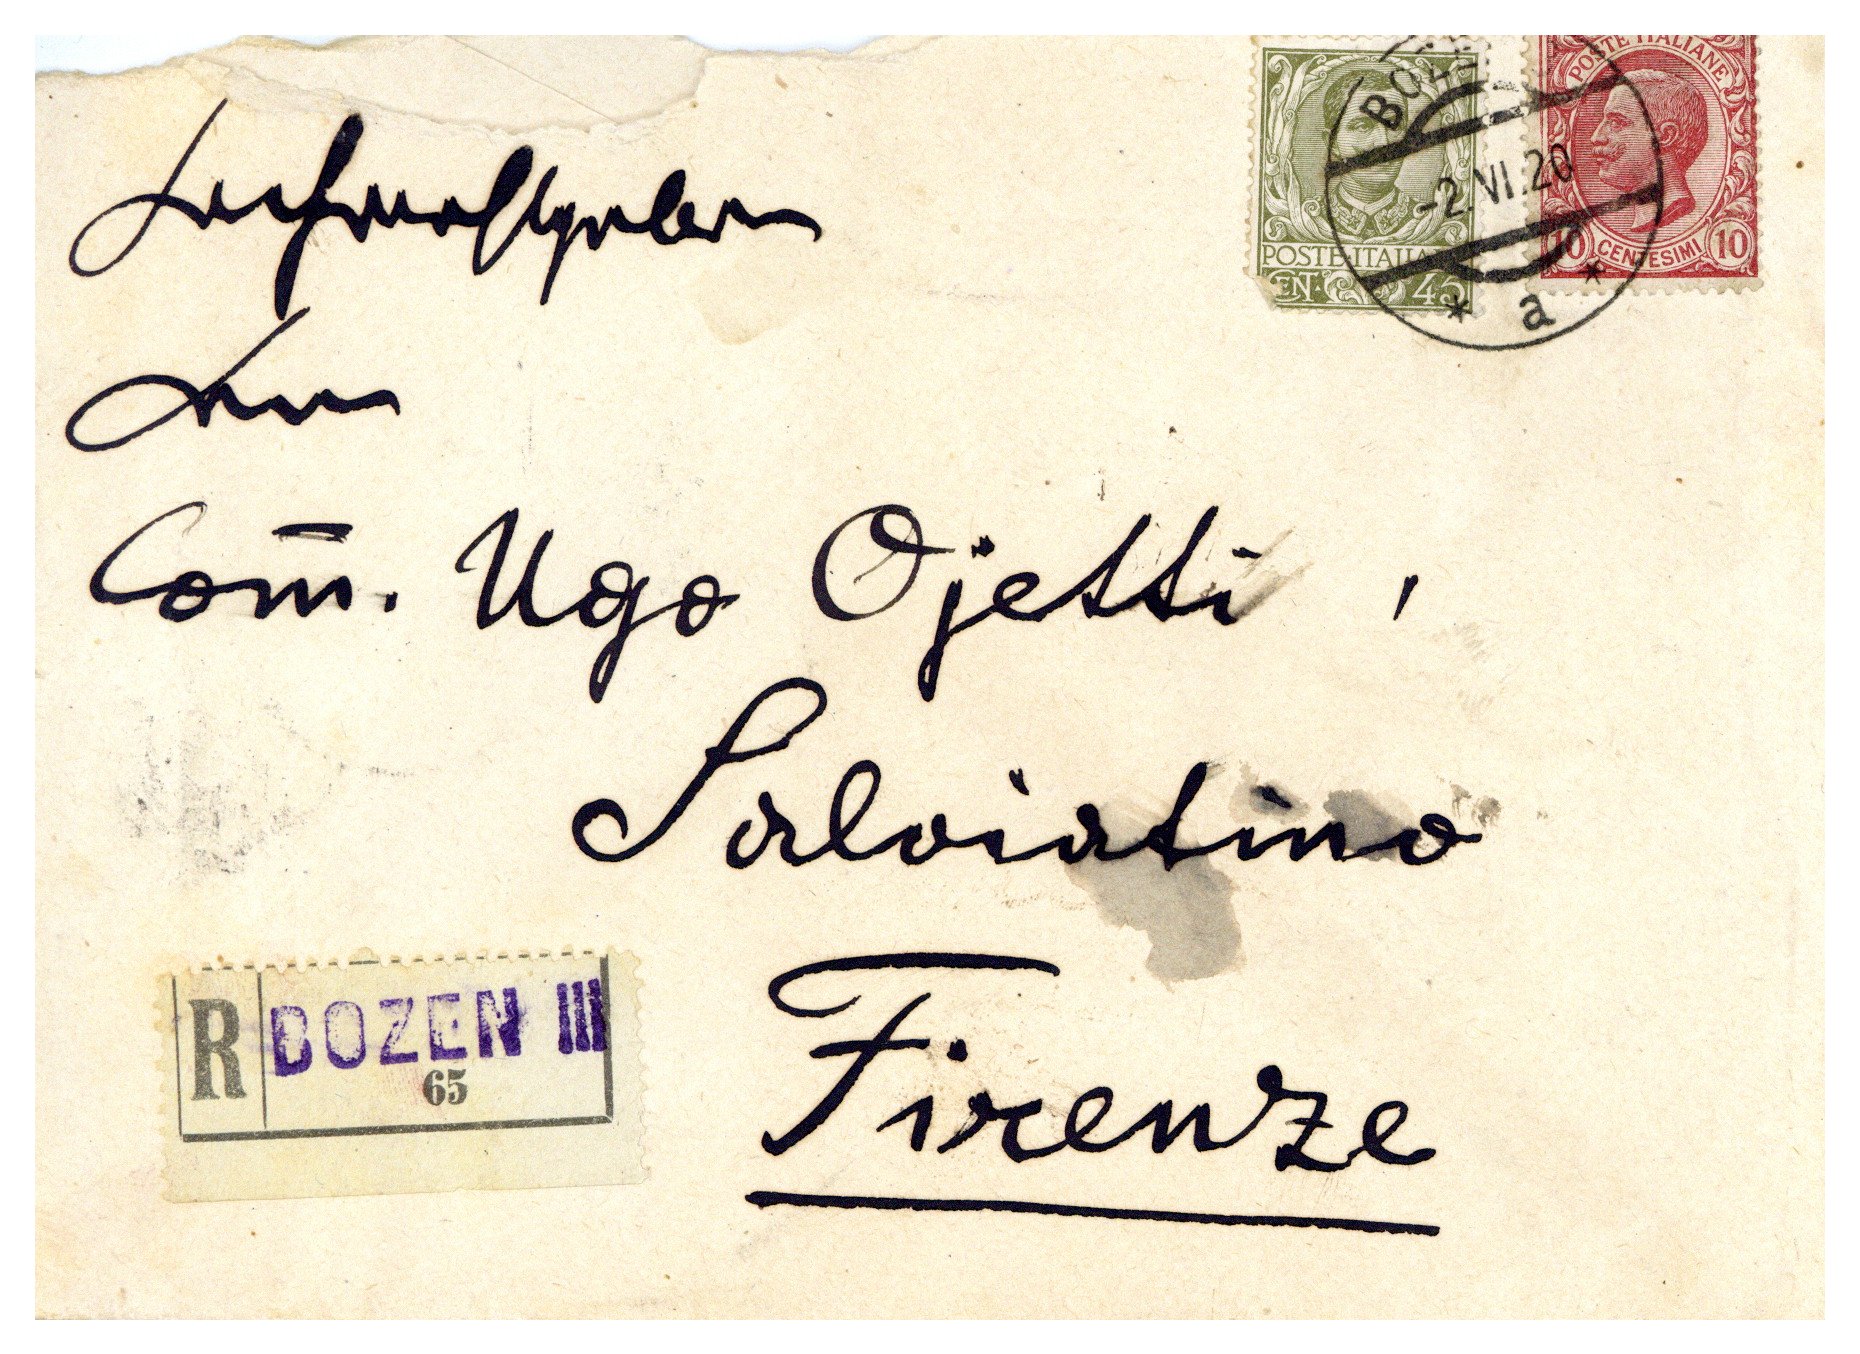 Hochwohlgeboren
Herrn
Com̄. Ugo Ojetti,
Salviatino
Firenze
POSTE·ITALIA
EN· 45
POSTE ITALIANE
10 CENTESIMI 10
-2.VI.20
* a *
R BOZEN III
65